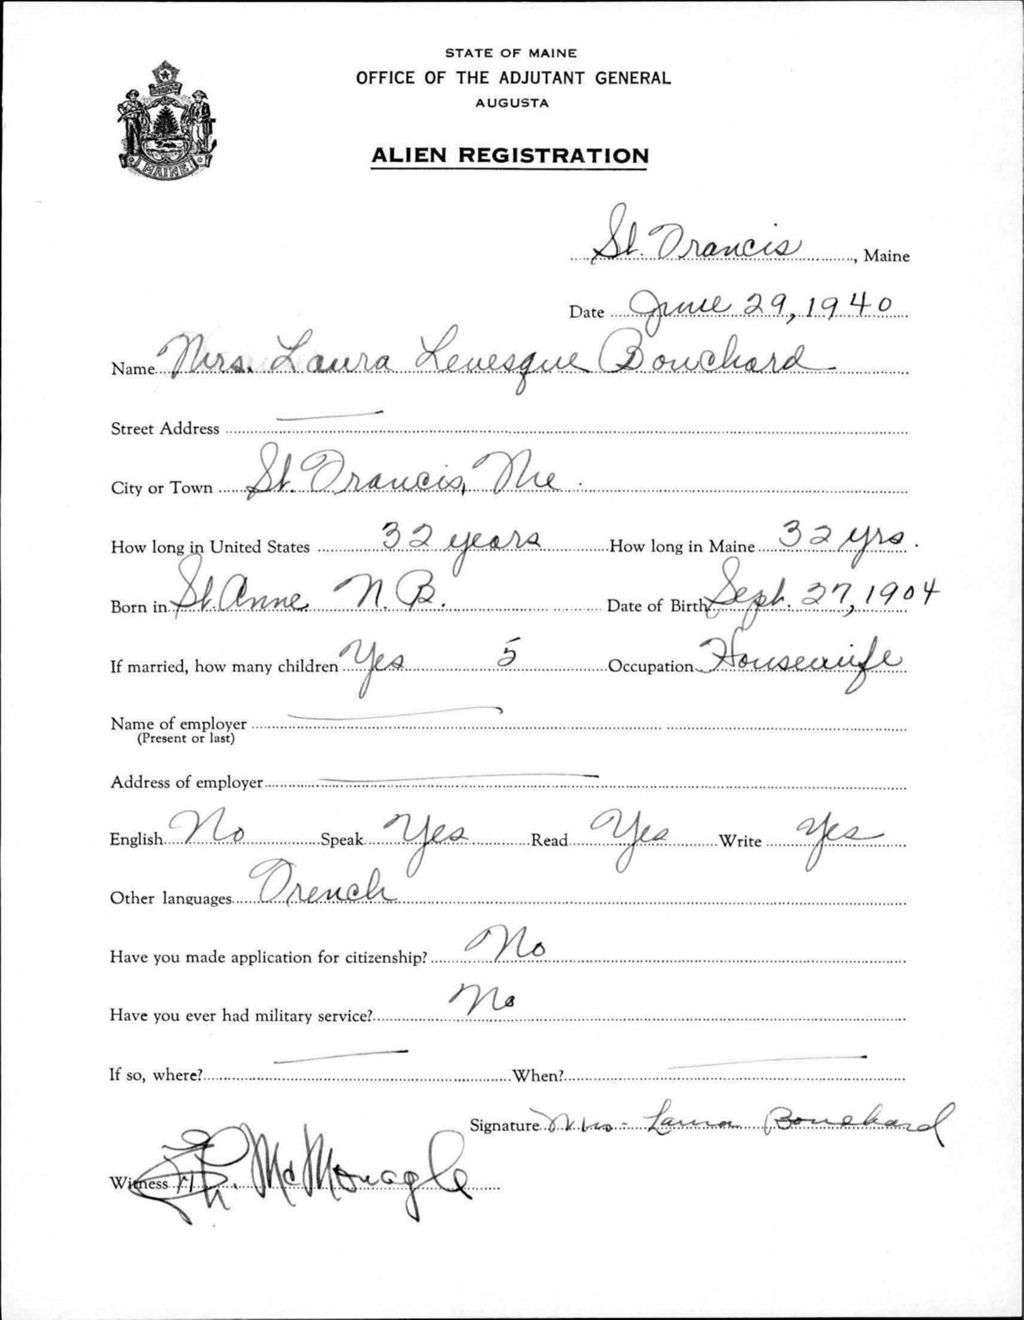 STATE OF MAINE
OFFICE OF THE ADJUTANT GENERAL
AUGUSTA
ALIEN REGISTRATION
MAINE
St. Francis, Maine
Date June 29, 1940
Name Mrs. Laura Levesque Bouchard
Street Address
City or Town St. Francis, Me
How long in United States 32 years How long in Maine 32 yrs.
Born in St. Anne N.B. Date of Birth Sept. 27, 1904
If married, how many children Yes 5 Occupation Housewife
Name of employer
(Present or last)
Address of employer
English No Speak Yes Read Yes Write Yes
Other languages French
Have you made application for citizenship? No
Have you ever had military service? No
If so, where? When?
Signature Mrs - Laura Bouchard
Witness McMonagle